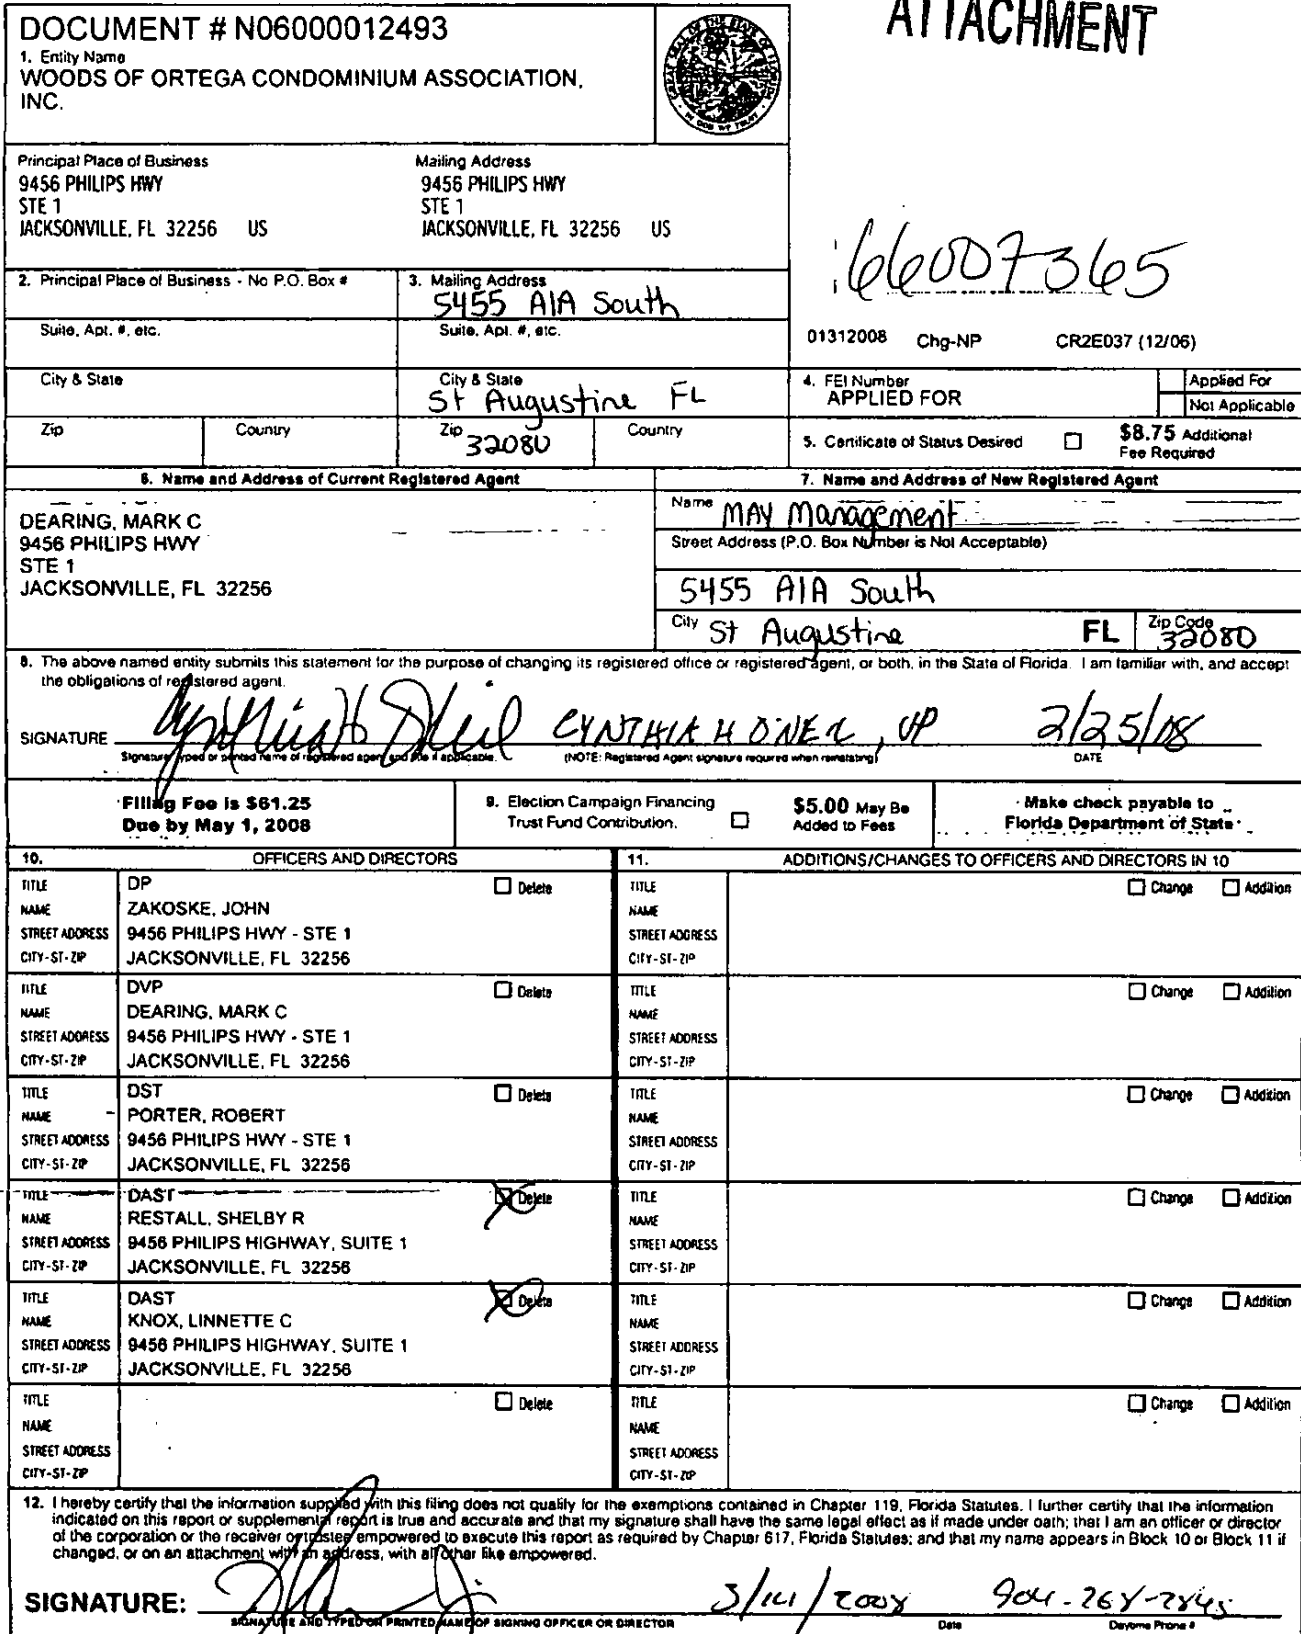 ATTACHMENT
DOCUMENT # N06000012493
1. Entity Name
WOODS OF ORTEGA CONDOMINIUM ASSOCIATION,
INC.
Principal Place of Business
9456 PHILIPS HWY
STE 1
JACKSONVILLE, FL 32256 US
Mailing Address
9456 PHILIPS HWY
STE 1
JACKSONVILLE, FL 32256 US
66007365
2. Principal Place of Business - No P.O. Box #
3. Mailing Address
5455 A1A South
Suite, Apt. #, etc.
Suite, Apt. #, etc.
01312008 Chg-NP CR2E037 (12/06)
City & State
City & State
St Augustine FL
4. FEI Number
APPLIED FOR
Applied For
Not Applicable
Zip
Country
Zip
32080
Country
5. Certificate of Status Desired
$8.75 Additional
Fee Required
6. Name and Address of Current Registered Agent
DEARING, MARK C
9456 PHILIPS HWY
STE 1
JACKSONVILLE, FL 32256
7. Name and Address of New Registered Agent
Name MAY Management
Street Address (P.O. Box Number is Not Acceptable)
5455 A1A South
City St Augustine FL Zip Code 32080
8. The above named entity submits this statement for the purpose of changing its registered office or registered agent, or both, in the State of Florida. I am familiar with, and accept
the obligations of registered agent.
SIGNATURE CYNTHIA H ONER, VP 2/25/08
Signature, typed or printed name of registered agent and title if applicable. (NOTE: Registered Agent signature required when reinstating) DATE
Filing Fee is $61.25
Due by May 1, 2008
9. Election Campaign Financing
Trust Fund Contribution.
$5.00 May Be
Added to Fees
Make check payable to
Florida Department of State
10. OFFICERS AND DIRECTORS
11. ADDITIONS/CHANGES TO OFFICERS AND DIRECTORS IN 10
TITLE DP Delete
NAME ZAKOSKE, JOHN
STREET ADDRESS 9456 PHILIPS HWY - STE 1
CITY-ST-ZIP JACKSONVILLE, FL 32256
TITLE Change Addition
NAME
STREET ADDRESS
CITY-ST-ZIP
TITLE DVP Delete
NAME DEARING, MARK C
STREET ADDRESS 9456 PHILIPS HWY - STE 1
CITY-ST-ZIP JACKSONVILLE, FL 32256
TITLE Change Addition
NAME
STREET ADDRESS
CITY-ST-ZIP
TITLE DST Delete
NAME PORTER, ROBERT
STREET ADDRESS 9456 PHILIPS HWY - STE 1
CITY-ST-ZIP JACKSONVILLE, FL 32256
TITLE Change Addition
NAME
STREET ADDRESS
CITY-ST-ZIP
TITLE DAST Delete
NAME RESTALL, SHELBY R
STREET ADDRESS 9456 PHILIPS HIGHWAY, SUITE 1
CITY-ST-ZIP JACKSONVILLE, FL 32256
TITLE Change Addition
NAME
STREET ADDRESS
CITY-ST-ZIP
TITLE DAST Delete
NAME KNOX, LINNETTE C
STREET ADDRESS 9456 PHILIPS HIGHWAY, SUITE 1
CITY-ST-ZIP JACKSONVILLE, FL 32256
TITLE Change Addition
NAME
STREET ADDRESS
CITY-ST-ZIP
TITLE Delete
NAME
STREET ADDRESS
CITY-ST-ZIP
TITLE Change Addition
NAME
STREET ADDRESS
CITY-ST-ZIP
12. I hereby certify that the information supplied with this filing does not qualify for the exemptions contained in Chapter 119, Florida Statutes. I further certify that the information
indicated on this report or supplemental report is true and accurate and that my signature shall have the same legal effect as if made under oath; that I am an officer or director
of the corporation or the receiver or trustee empowered to execute this report as required by Chapter 617, Florida Statutes; and that my name appears in Block 10 or Block 11 if
changed, or on an attachment with an address, with all other like empowered.
SIGNATURE: 904-268-2845
SIGNATURE AND TYPED OR PRINTED NAME OF SIGNING OFFICER OR DIRECTOR Date Daytime Phone #